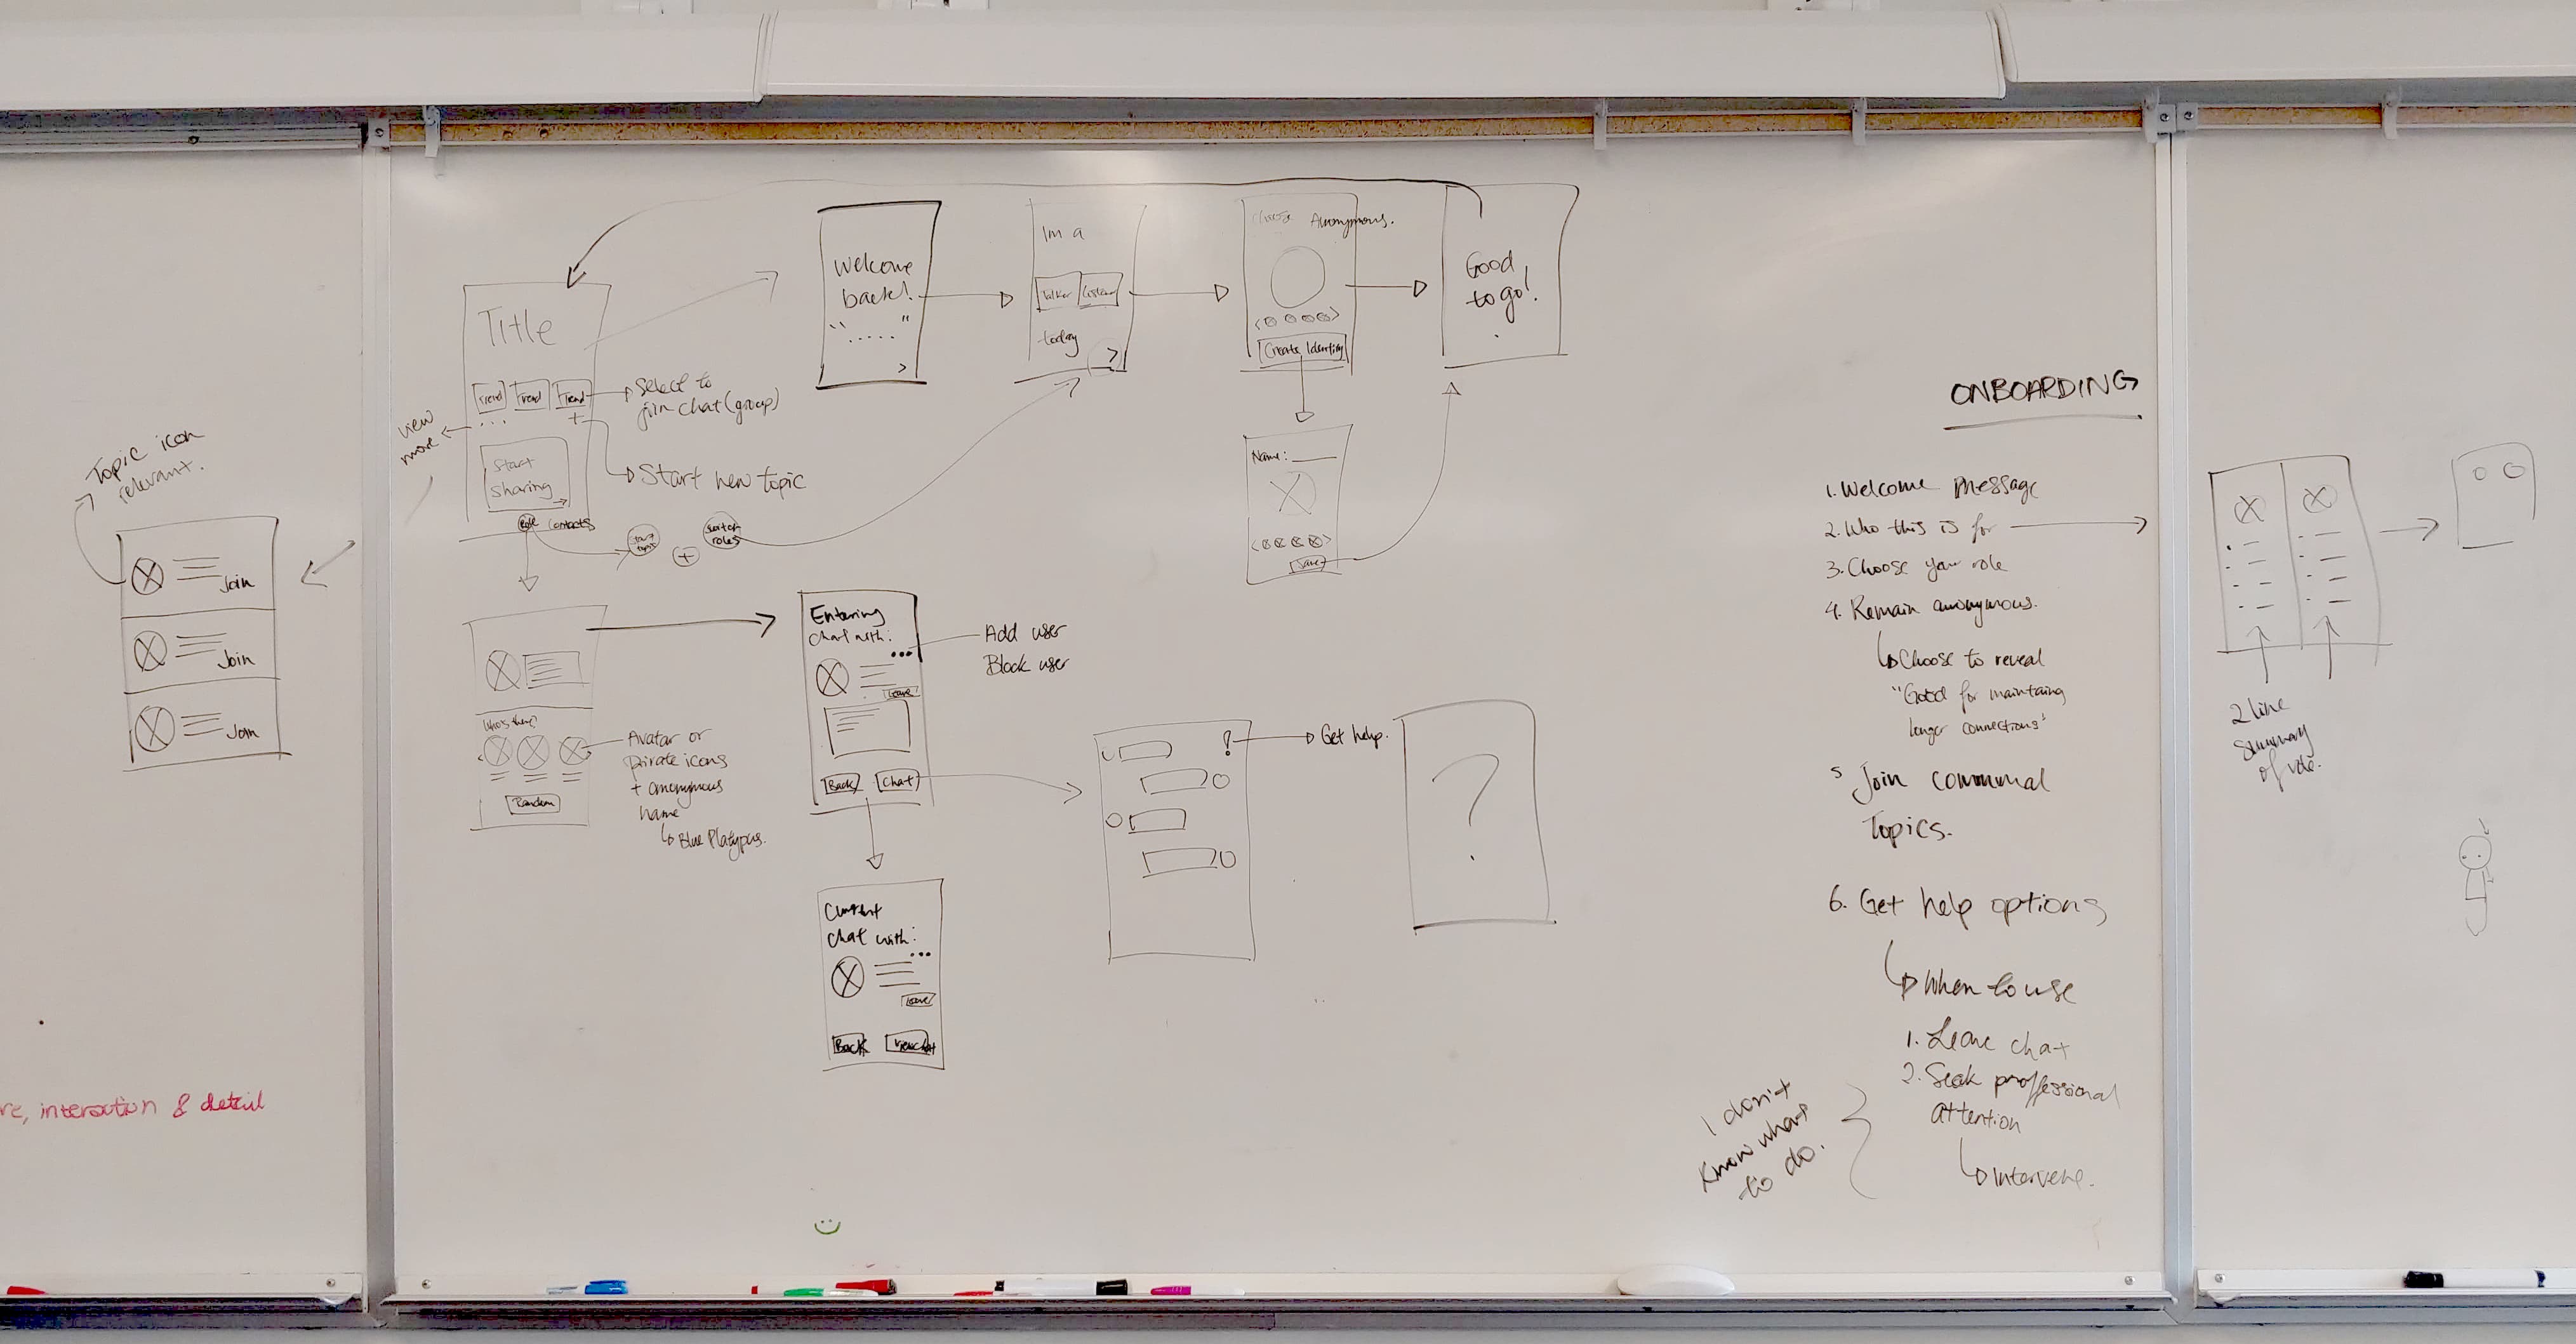 Topic icon
relevant.
Join
Join
Join
re, interaction & detail
Title
Trend
Trend
Trend
+
...
view
more
Select to
join chat (group)
Start new topic
Start
sharing
Role
Contacts
Start
topic
+
Switch
roles
Welcome
back!
"....."
>
Im a
Talker
Listener
today
>
Choose Anonymous.
Create Identity
Good
to go!
Name:
Save
Who's there?
Random
Avatar or
pirate icons
+ anonymous
name
Blue Platypus.
Entering
chat with:
...
Leave
Back
Chat
Add user
Block user
Current
chat with:
...
Leave
Back
View chat
!
Get help.
?
ONBOARDING
1. Welcome message
2. Who this is for
3. Choose your role
4. Remain anonymous.
Choose to reveal
"Good for maintaing
longer connections"
5 Join communal
Topics.
6. Get help options
When to use
1. Leave chat
2. Seak proffessional
attention
Intervene.
I don't
know what
to do.
2 line
summary
of role.